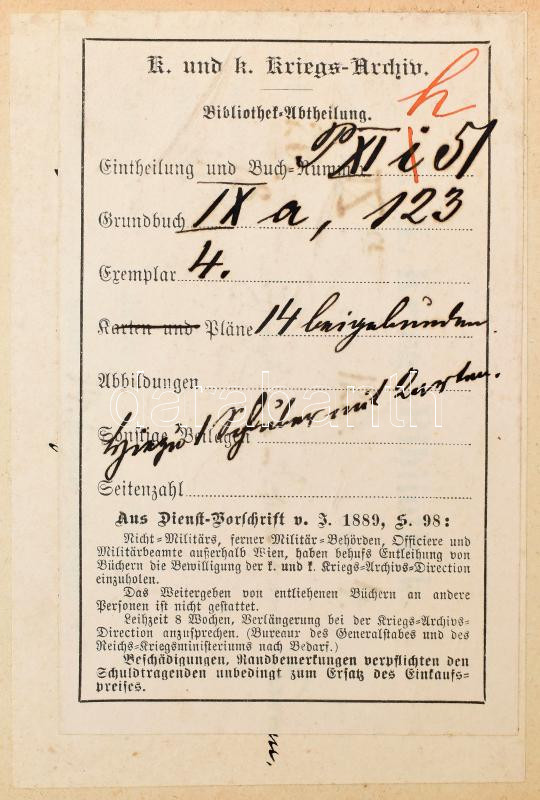 K. und k. Kriegs-Archiv.
h
Bibliothek-Abtheilung.
Eintheilung und Buch-Nummer XI i 51
Grundbuch IX a, 123
Exemplar 4.
Karten und Pläne 14 beigebunden
Abbildungen
Hiezu 1 Schuber mit Karten.
Sonstige Beilagen
Seitenzahl
Aus Dienst-Vorschrift v. J. 1889, S. 98:
Nicht-Militärs, ferner Militär-Behörden, Officiere und
Militärbeamte außerhalb Wien, haben behufs Entleihung von
Büchern die Bewilligung der k. und k. Kriegs-Archivs-Direction
einzuholen.
Das Weitergeben von entliehenen Büchern an andere
Personen ist nicht gestattet.
Leihzeit 8 Wochen, Verlängerung bei der Kriegs-Archivs-
Direction anzusprechen. (Bureaux des Generalstabes und des
Reichs-Kriegsministeriums nach Bedarf.)
Beschädigungen, Randbemerkungen verpflichten den
Schuldtragenden unbedingt zum Ersatz des Einkaufs-
preises.
darabanth